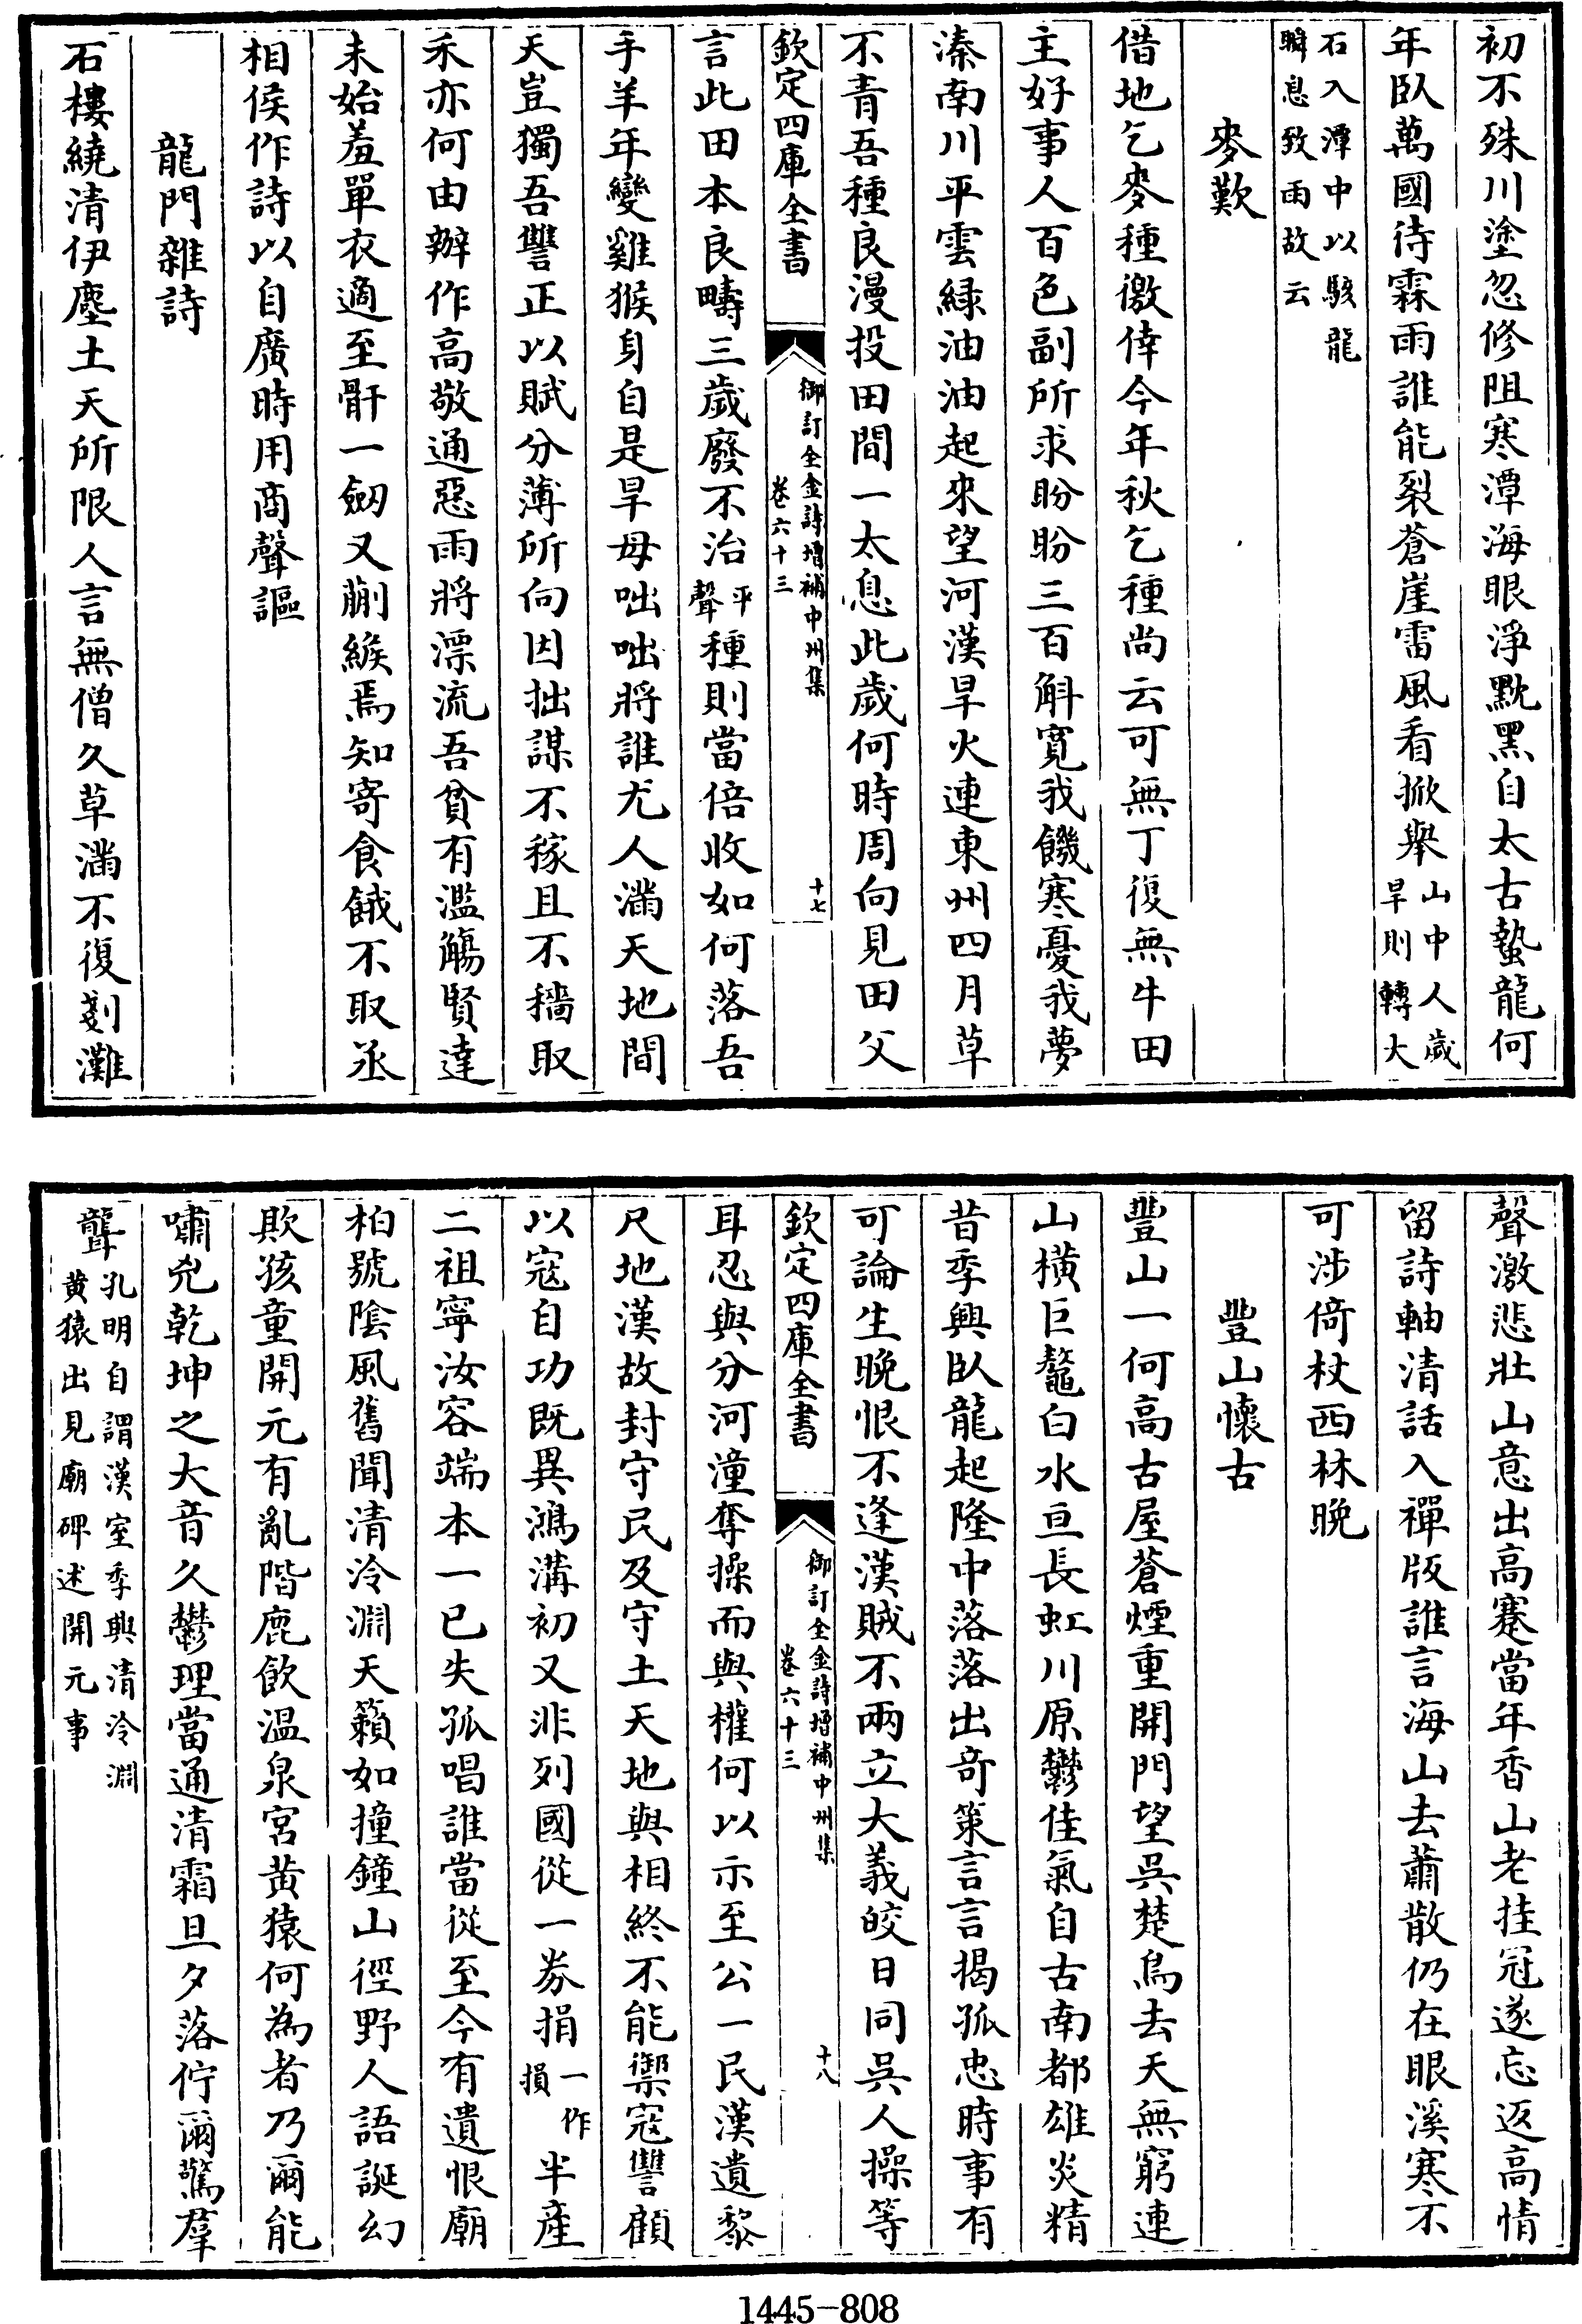 初不殊川塗忽修阻寒潭海眼淨黕黑自太古蟄龍何
年臥萬國待霖雨誰能裂蒼崖雷風看掀舉山中人歲旱則轉大
石入潭中以駭龍瞬息致雨故云
麥歎
借地乞麥種徼倖今年秋乞種尚云可無丁復無牛田
主好事人百色副所求盼盼三百斛寬我饑寒憂我夢
溱南川平雲緑油油起來望河漢旱火連東州四月草
不青吾種良漫投田間一太息此歲何時周向見田父
欽定四庫全書
御訂全金詩增補中州集
卷六十三
十七
言此田本良疇三歲廢不治平聲種則當倍收如何落吾
手羊年變雞猴身自是旱母咄咄將誰尤人滿天地間
天豈獨吾讐正以賦分薄所向因拙謀不稼且不穡取
禾亦何由辦作高敬通惡雨將漂流吾貧有濫觴賢達
未始羞單衣適至骭一劒又蒯緱焉知寄食餓不取丞
相侯作詩以自廣時用商聲謳
龍門雜詩
石樓繞清伊塵土天所限人言無僧久草滿不復剗灘
聲激悲壯山意出高蹇當年香山老挂冠遂忘返高情
留詩軸清話入禪版誰言海山去蕭散仍在眼溪寒不
可涉倚杖西林晚
豐山懷古
豐山一何高古屋蒼煙重開門望吳楚鳥去天無窮連
山橫巨鼇白水亘長虹川原鬱佳氣自古南都雄炎精
昔季興臥龍起隆中落落出竒策言言揭孤忠時事有
可論生晚恨不逢漢賊不兩立大義皎日同吳人操等
欽定四庫全書
御訂全金詩增補中州集
卷六十三
十八
耳忍與分河潼奪操而與權何以示至公一民漢遺黎
尺地漢故封守民及守土天地與相終不能禦寇讐顧
以寇自功既異鴻溝初又非列國從一券捐一作損半産
二祖寧汝容端本一已失孤唱誰當從至今有遺恨廟
柏號陰風舊聞清泠淵天籟如撞鐘山徑野人語誕幻
欺孩童開元有亂階鹿飲温泉宮黃猿何為者乃爾能
嘯兇乾坤之大音久鬱理當通清霜旦夕落佇爾驚羣
聾孔明自謂漢室季興清泠淵黃猿出見廟碑述開元事
1445-808